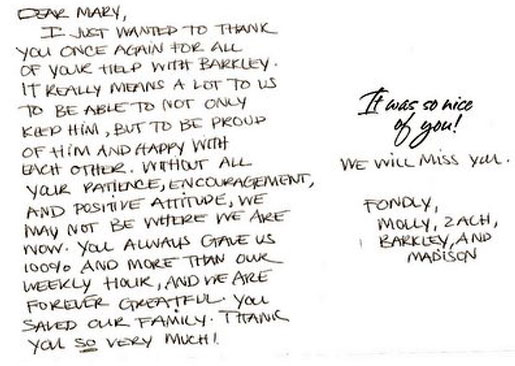 DEAR MARY,
I JUST WANTED TO THANK
YOU ONCE AGAIN FOR ALL
OF YOUR HELP WITH BARKLEY.
IT REALLY MEANS A LOT TO US
TO BE ABLE TO NOT ONLY
KEEP HIM, BUT TO BE PROUD
OF HIM AND HAPPY WITH
EACH OTHER. WITHOUT ALL
YOUR PATIENCE, ENCOURAGEMENT,
AND POSITIVE ATTITUDE, WE
MAY NOT BE WHERE WE ARE
NOW. YOU ALWAYS GAVE US
100% AND MORE THAN OUR
WEEKLY HOUR, AND WE ARE
FOREVER GREATFUL. YOU
SAVED OUR FAMILY. THANK
YOU SO VERY MUCH!
It was so nice
of you!
WE WILL MISS YOU.
FONDLY,
MOLLY, ZACH,
BARKLEY, AND
MADISON